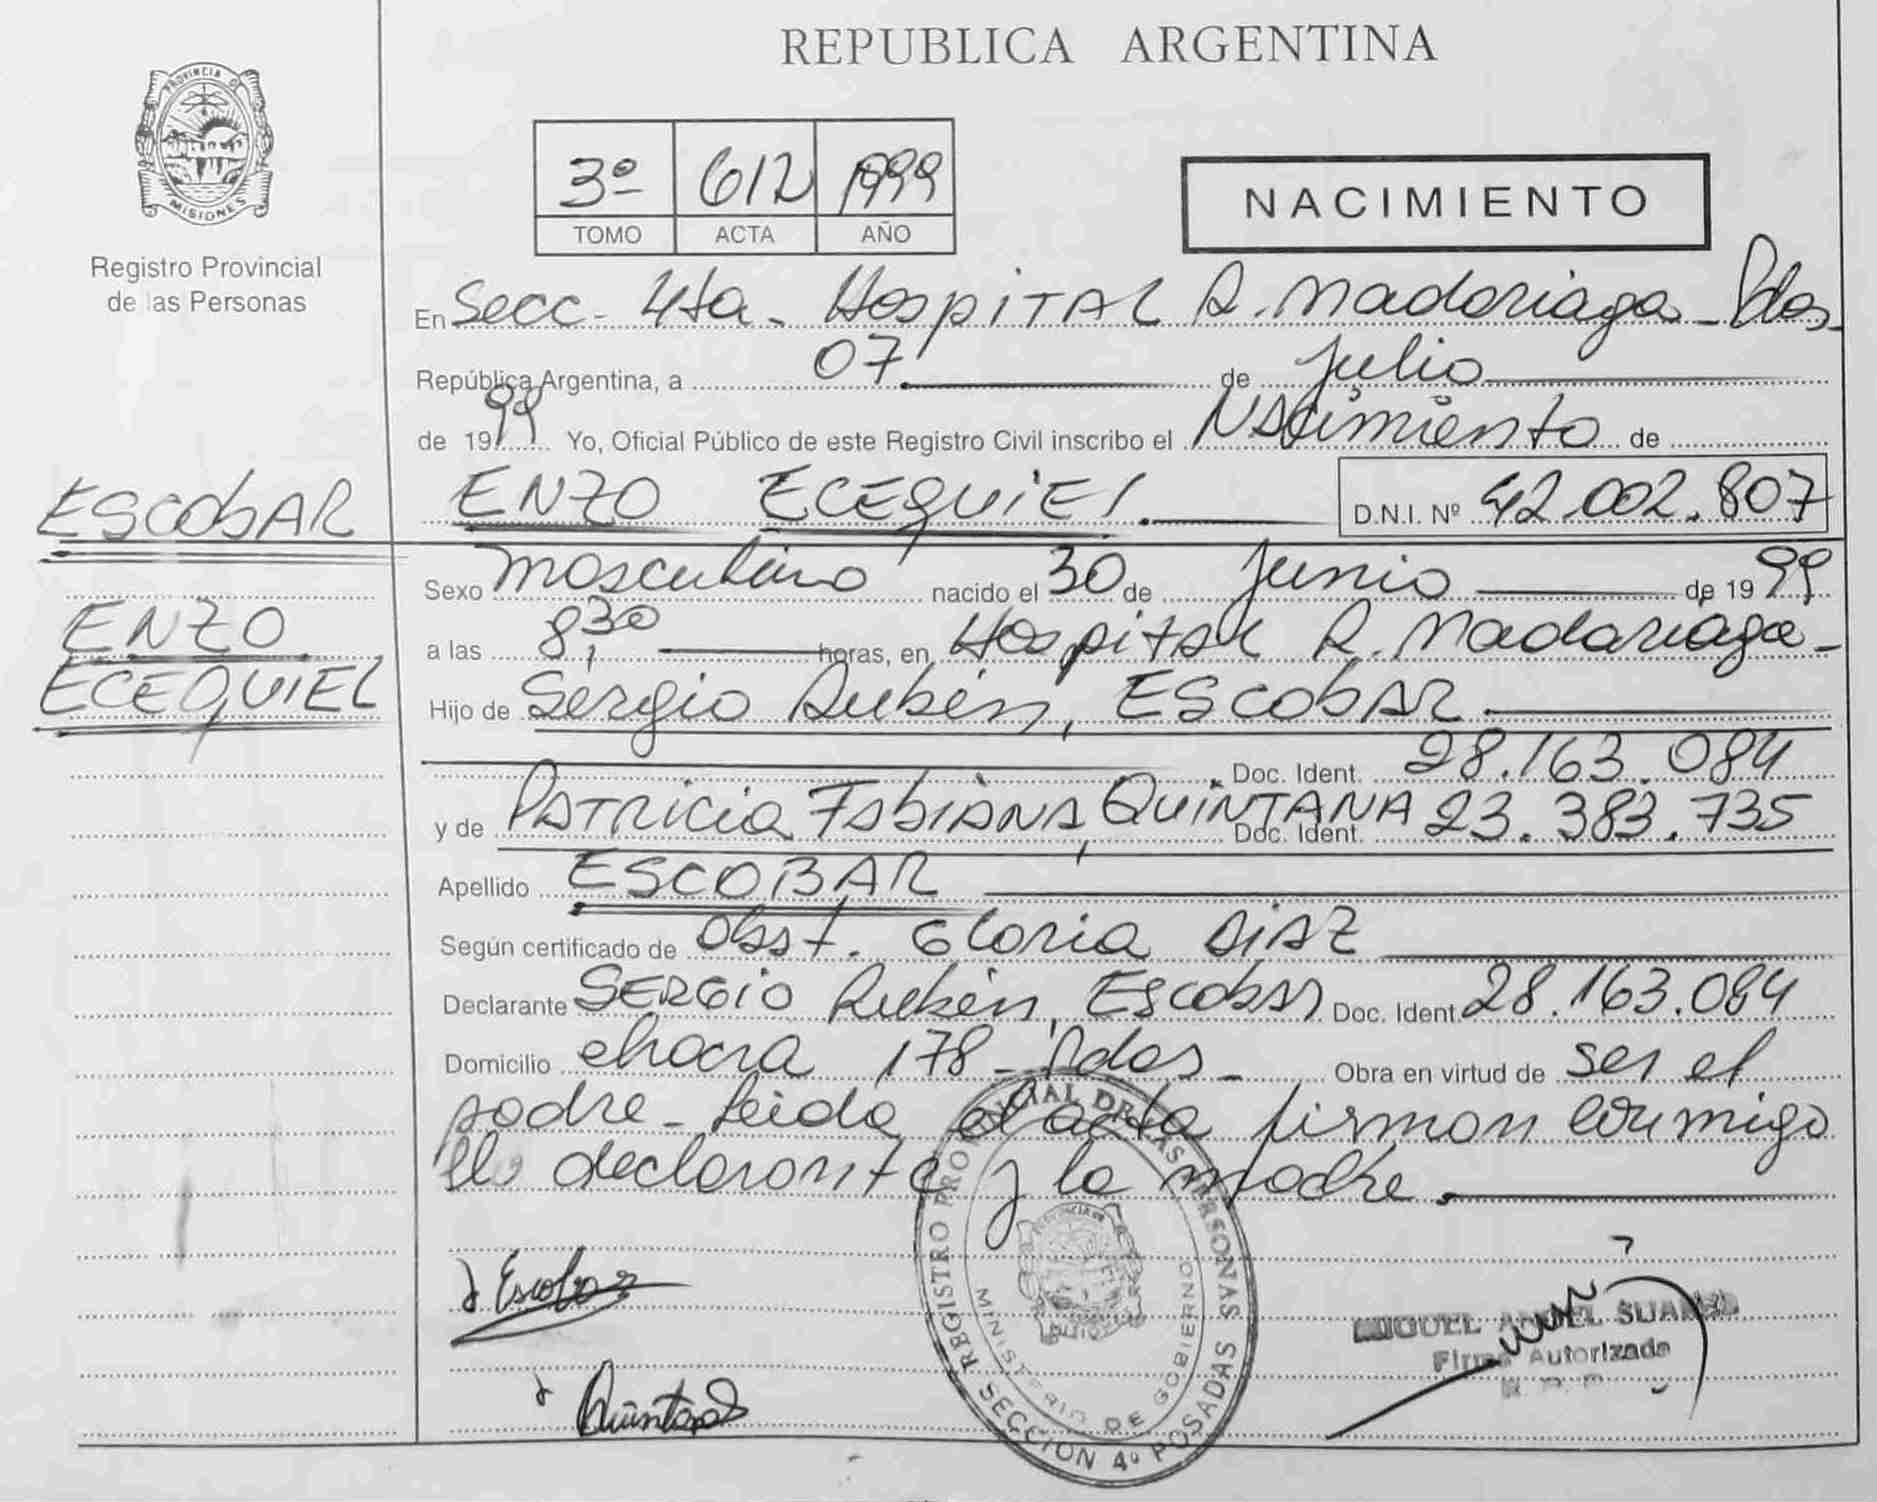 REPUBLICA ARGENTINA
PROVINCIA DE
MISIONES
Registro Provincial
de las Personas
3º 612 1999
TOMO ACTA AÑO
NACIMIENTO
En Secc. 4ta. Hospital R. Madariaga - Pdas.
República Argentina, a 07 de Julio
de 1999 Yo, Oficial Público de este Registro Civil inscribo el Nacimiento de
ENZO ECEQUIEL. D.N.I. Nº 42.002.807
ESCObAR
ENZO
ECEQUIEL
Sexo masculino nacido el 30 de Junio de 1999
a las 8,30 horas, en Hospital R. Madariaga -
Hijo de Sergio Rubén, ESCObAR
Doc. Ident. 28.163.084
y de PATRICIA FAbIANA, QUINTANA Doc. Ident. 23.383.735
Apellido ESCOBAR
Según certificado de Obst. Gloria DIAZ
Declarante SERGIO Rubén, EscobAr Doc. Ident 28.163.084
Domicilio chacra 178 - Pdas - Obra en virtud de ser el
padre - Leida el acta firman conmigo
el declarante y la madre.
Escobar
Quintana
REGISTRO PROVINCIAL DE LAS PERSONAS
MINISTERIO DE GOBIERNO
SECCION 4º POSADAS
MIGUEL ANGEL SUAREZ
Firma Autorizada